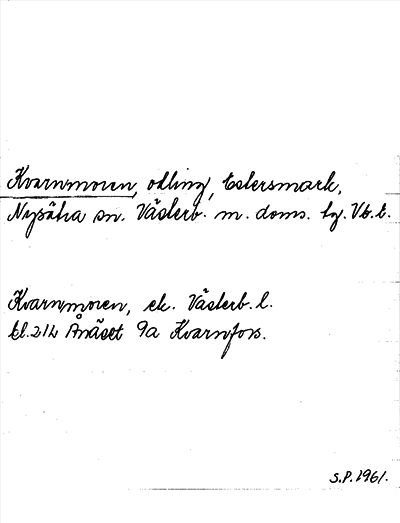 Kvarnmoren, odling, Estersmark,
Nysätra sn. Västerb. m. doms. tg. Vb. l.
Kvarnmoren, ek. Västerb. l.
bl. 212 Ånäset 9a Kvarnfors.
S.P. 1961.